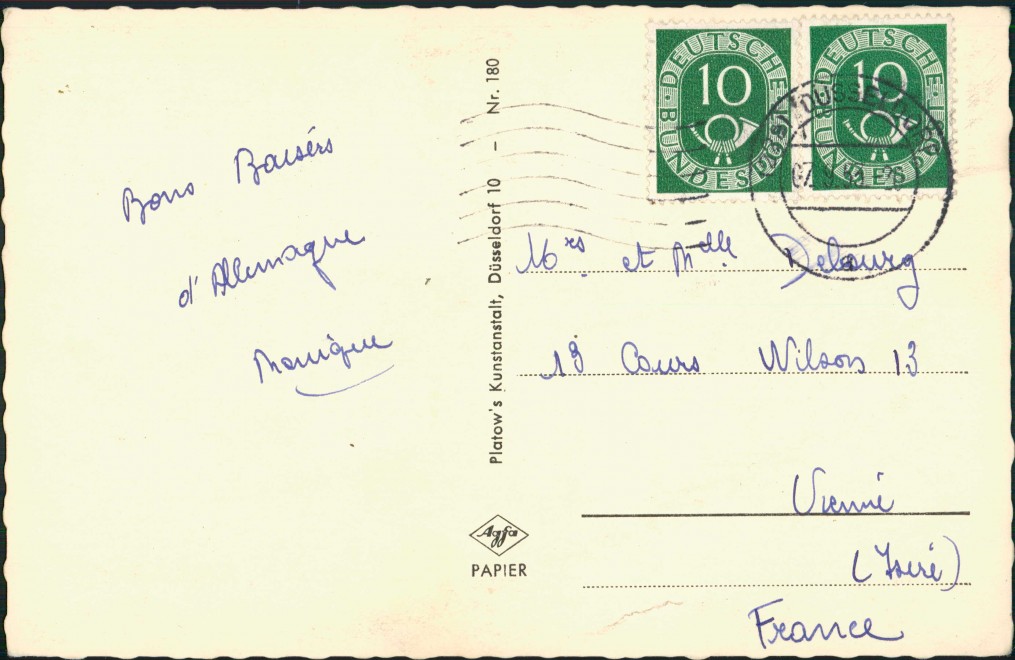 Bons Baisérs
d'Allemagne
Monique
Platow's Kunstanstalt, Düsseldorf 10 – Nr. 180
Agfa
PAPIER
DEUTSCHE BUNDESPOST
10
DEUTSCHE BUNDESPOST
10
DÜSSELDORF
Mrs et Melle Delourg
19 Cours Wilson 13
Vienne
(Isère)
France